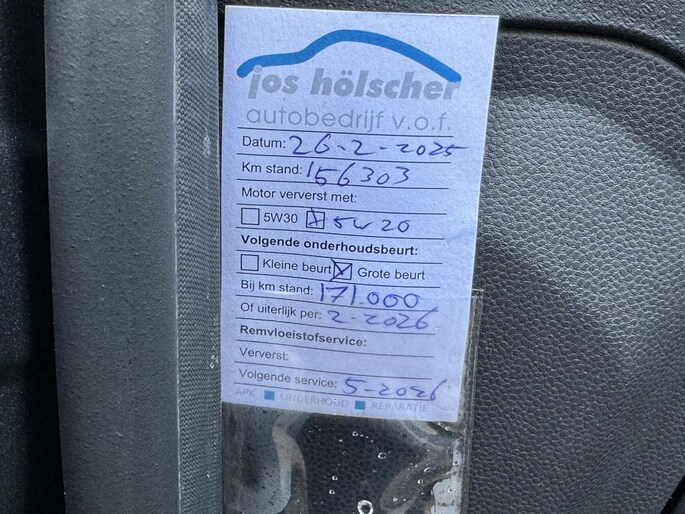 jos hölscher
autobedrijf v.o.f.
Datum: 26-2-2025
Km stand: 156303
Motor ververst met:
5W30 5W20
Volgende onderhoudsbeurt:
Kleine beurt Grote beurt
Bij km stand: 171.000
Of uiterlijk per: 2-2026
Remvloeistofservice:
Ververst:
Volgende service: 5-2026
APK ONDERHOUD REPARATIE